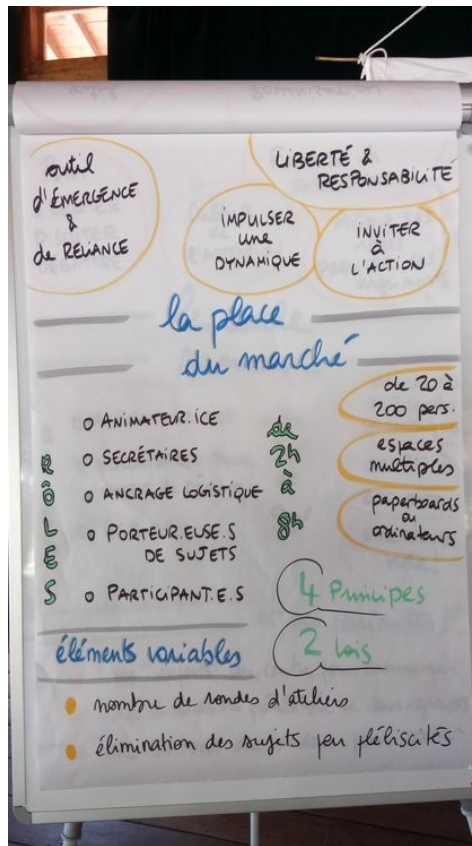 outil
d'ÉMERGENCE
&
de RELIANCE
LIBERTÉ &
RESPONSABILITÉ
IMPULSER
une
DYNAMIQUE
INVITER
à
L'ACTION
la place
du marché
RÔLES
o ANIMATEUR.ICE
o SECRÉTAIRES
o ANCRAGE LOGISTIQUE
o PORTEUR.EUSE.S
DE SUJETS
o PARTICIPANT.E.S
de
2h
à
8h
de 20 à
200 pers.
espaces
multiples
paperboards
ou
ordinateurs
4 Principes
2 lois
éléments variables
nombre de rondes d'ateliers
élimination des sujets peu plébiscités